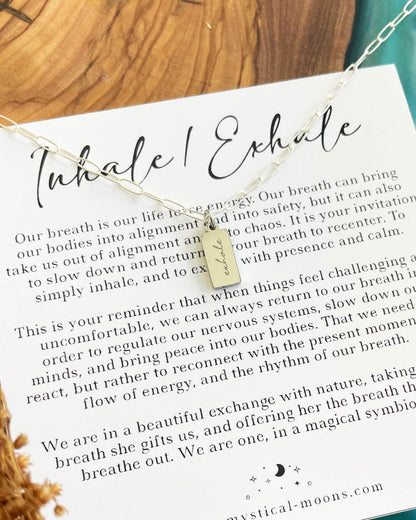 Inhale | Exhale
Our breath is our life energy. Our breath can bring
our bodies into alignment and into safety, but it can also
take us out of alignment and to chaos. It is your invitation
to slow down and return your breath to recenter. To
simply inhale, and to with presence and calm.
exhale
This is your reminder that when things feel challenging
uncomfortable, we can always return to our breath
order to regulate our nervous systems, slow down
minds, and bring peace into our bodies. That we need
react, but rather to reconnect with the present
flow of energy, and the rhythm of our breath.
We are in a beautiful exchange with nature, taking
breath she gifts us, and offering her the breath
breathe out. We are one, in a magical
mystical-moons.com